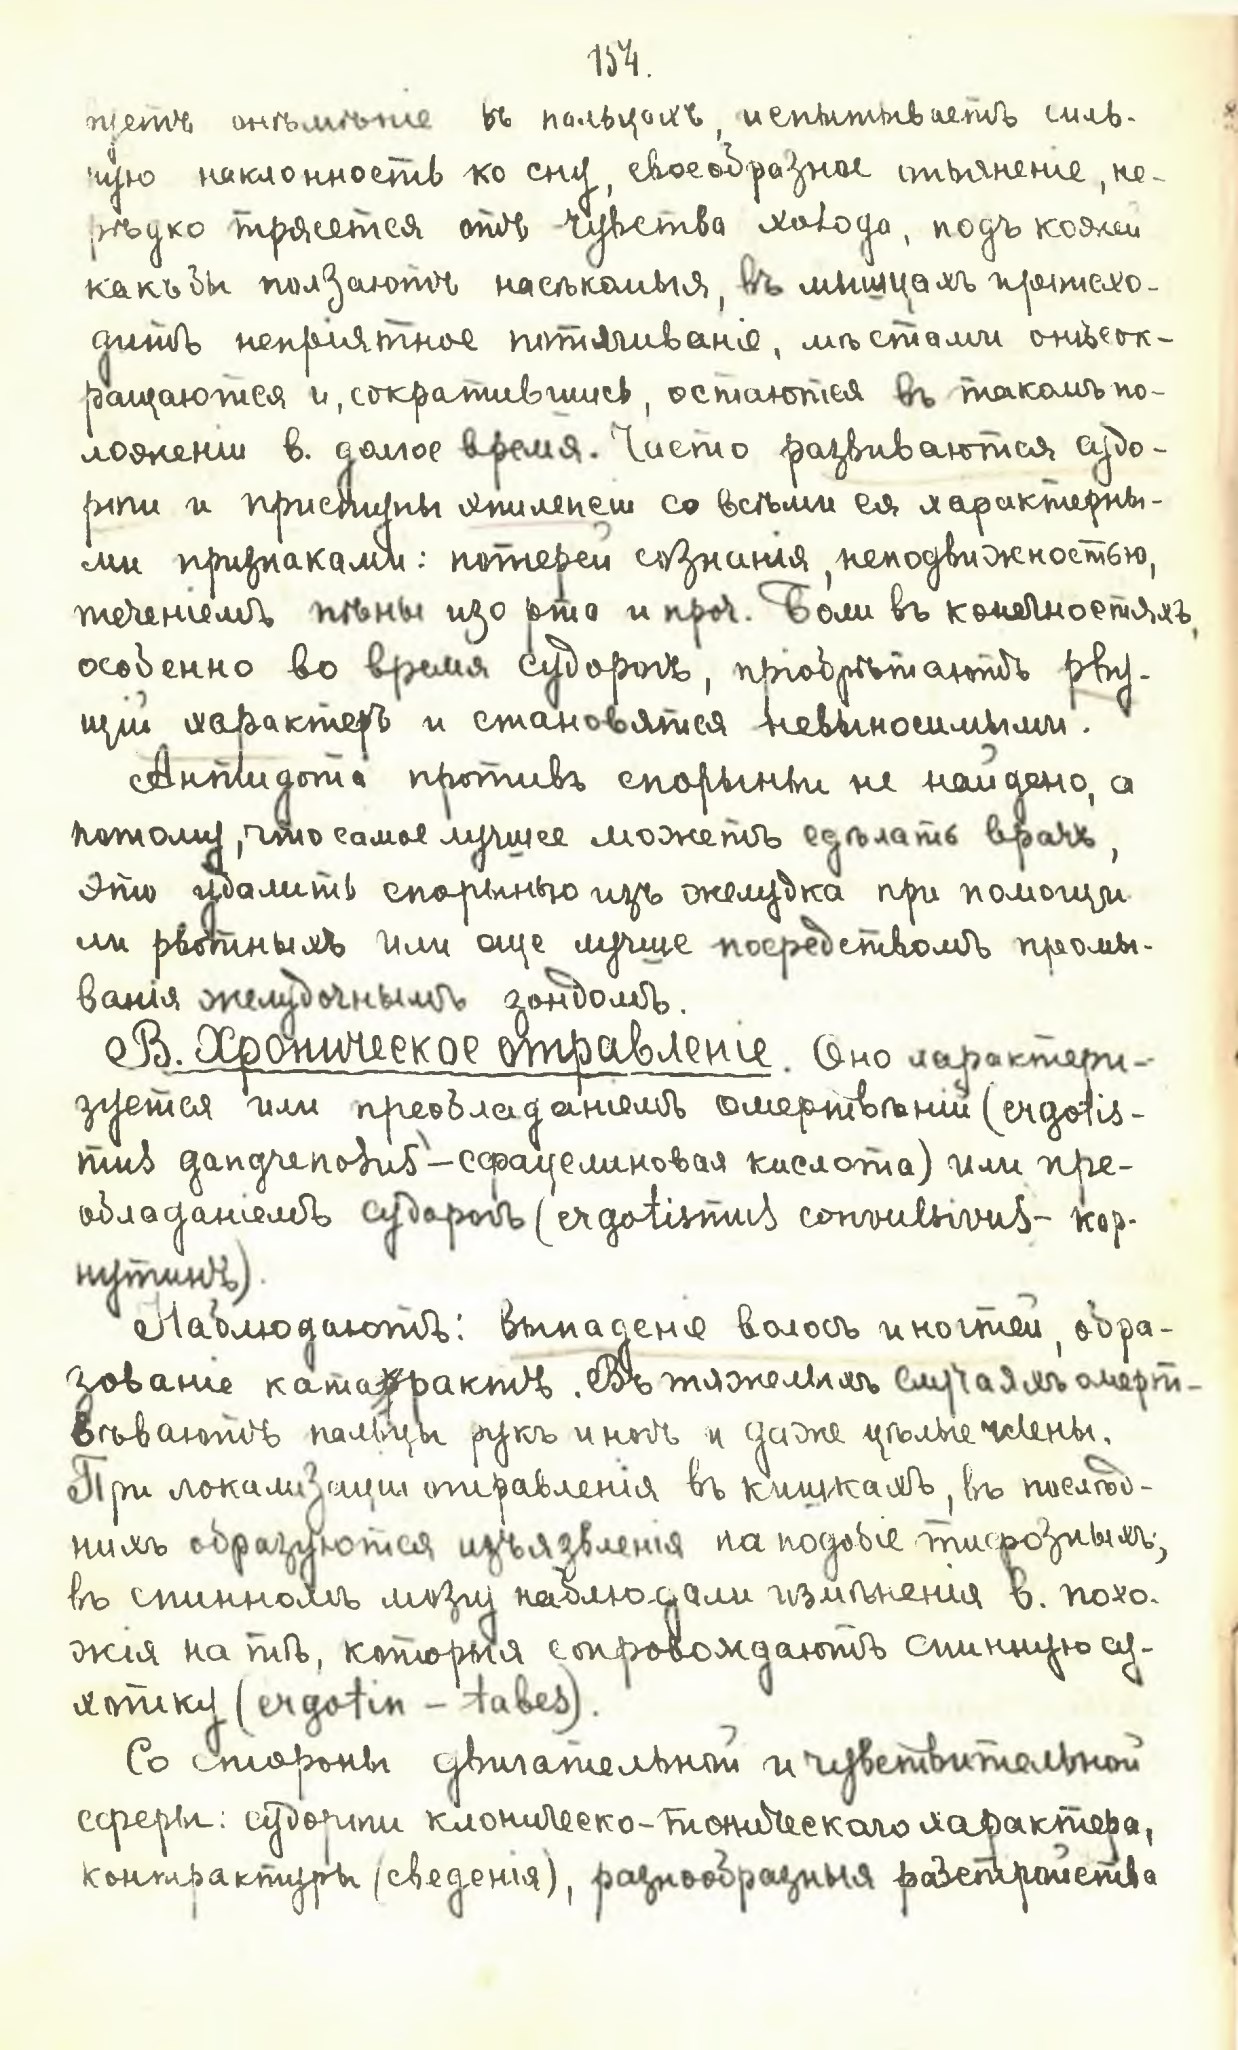 154.
онѣмѣніе въ пальцахъ, испытываетъ силь-
ную наклонность ко сну, своеобразное опьянение, не-
рѣдко трясется отъ чувства холода, подъ кожей
какъ бы ползаютъ насѣкомыя, въ мышцахъ происхо-
дитъ непріятное потягиваніе, мѣстами онѣ сок-
ращаются и, сократившись, остаются въ такомъ по-
ложеніи в. долгое время. Часто развиваются судо-
роги и приступы эпилепсіи со всѣми ея характерны-
ми признаками: потерей сознанія, неподвижностью,
теченіемъ пѣны изо рта и проч. Боли въ конечностяхъ,
особенно во время судорогъ, пріобрѣтаютъ рву-
щій характеръ и становятся невыносимыми.
Антидота противъ спорыньи не найдено, а
потому, что самое лучшее можетъ сдѣлать врачъ,
это удалить спорынью изъ желудка при помощи
ли рвотныхъ или еще лучше посредствомъ промы-
ванія желудочнымъ зондомъ.
В. Хроническое отравленіе. Оно характери-
зуется или преобладаніемъ омертвѣній (ergotis-
mus gangrenosus - сфацелиновая кислота) или пре-
обладаніемъ судорогъ (ergotismus convulsivus - кор-
нутинъ).
Наблюдаютъ: выпаденіе волосъ и ногтей, обра-
зованіе катарактъ. Въ тяжелыхъ случаяхъ омерт-
вѣваютъ пальцы рукъ и ногъ и даже цѣлые члены.
При локализаціи отравленія въ кишкахъ, въ послѣд-
нихъ образуются изъязвленія на подобіе тифозныхъ;
въ спинномъ мозгу наблюдали измѣненія в. похо-
жія на тѣ, которыя сопровождаютъ спинную су-
хотку (ergotin - tabes).
Со стороны двигательной и чувствительной
сферы: судороги клоническо-тоническаго характера,
контрактуры (сведенія), разнообразныя разстройства